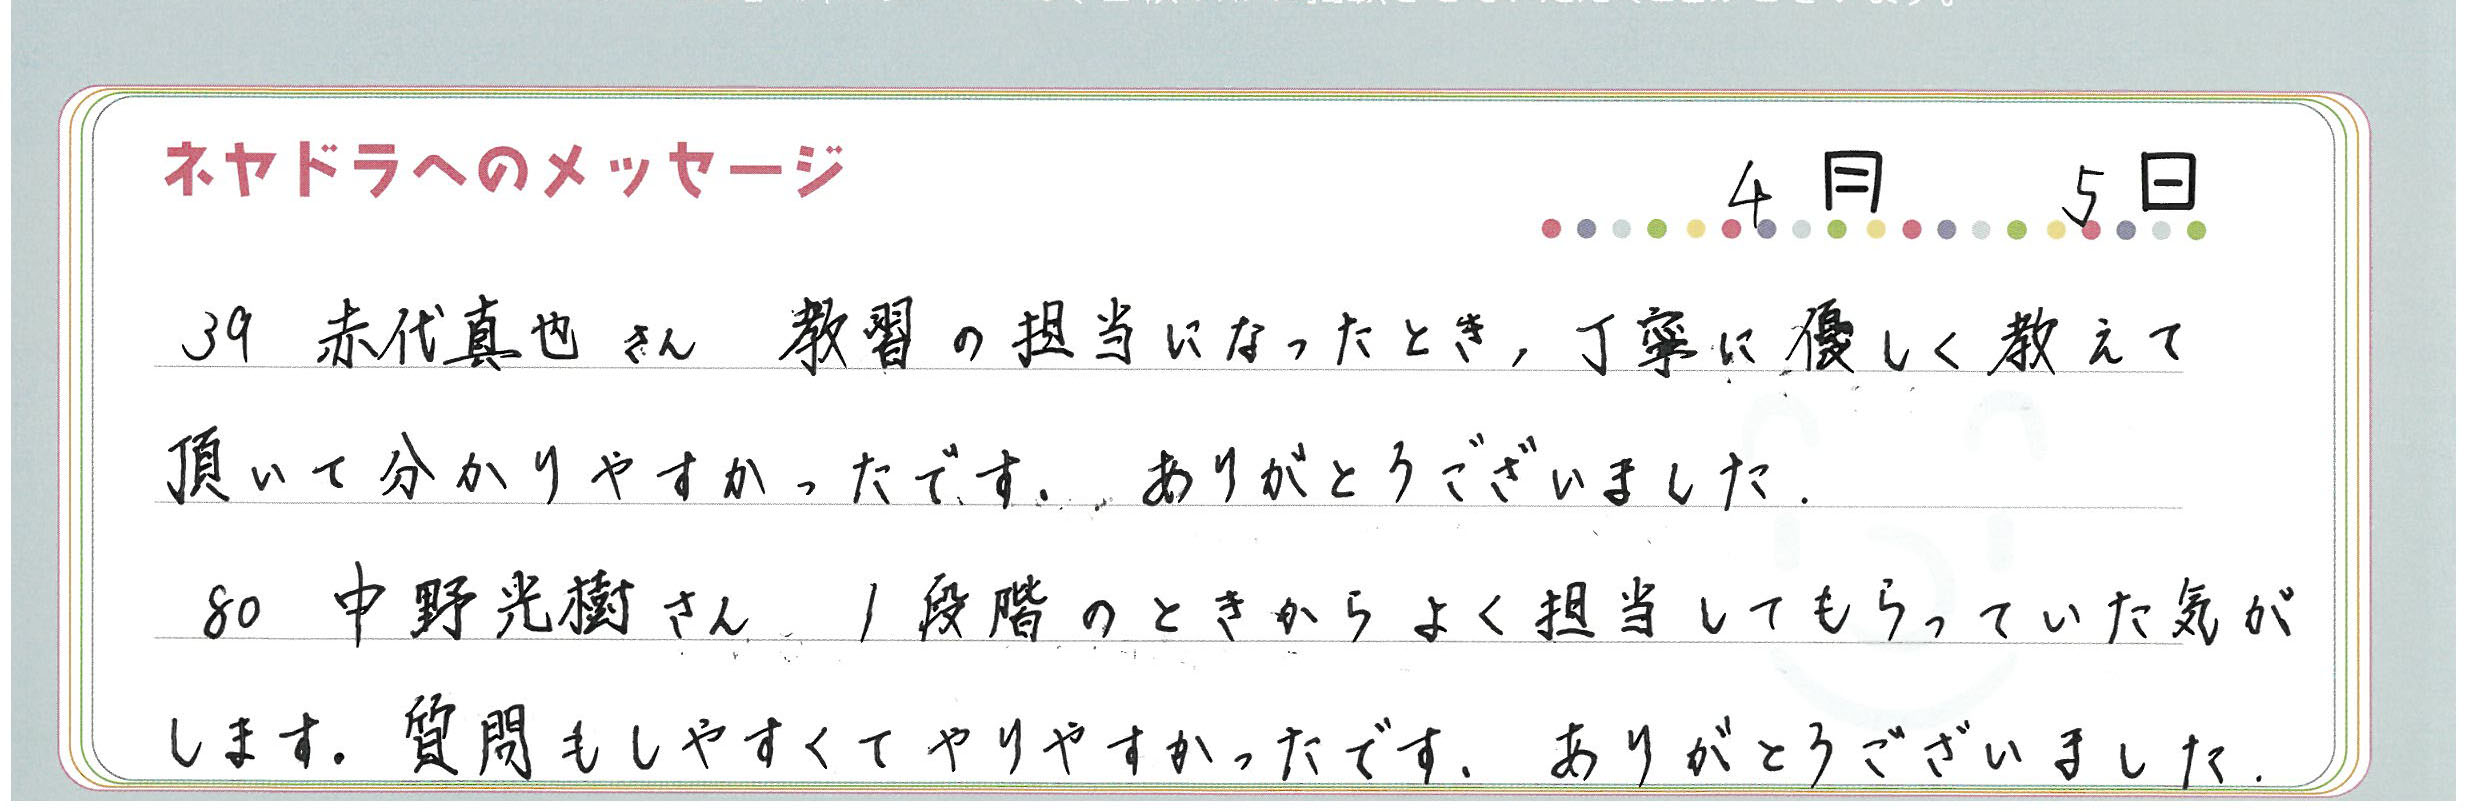 ネヤドラへのメッセージ
4月 5日
39 赤代真也さん 教習の担当になったとき,丁寧に優しく教えて
頂いて分かりやすかったです. ありがとうございました.
80 中野光樹さん 1段階のときからよく担当してもらっていた気が
します. 質問もしやすくてやりやすかったです. ありがとうございました.